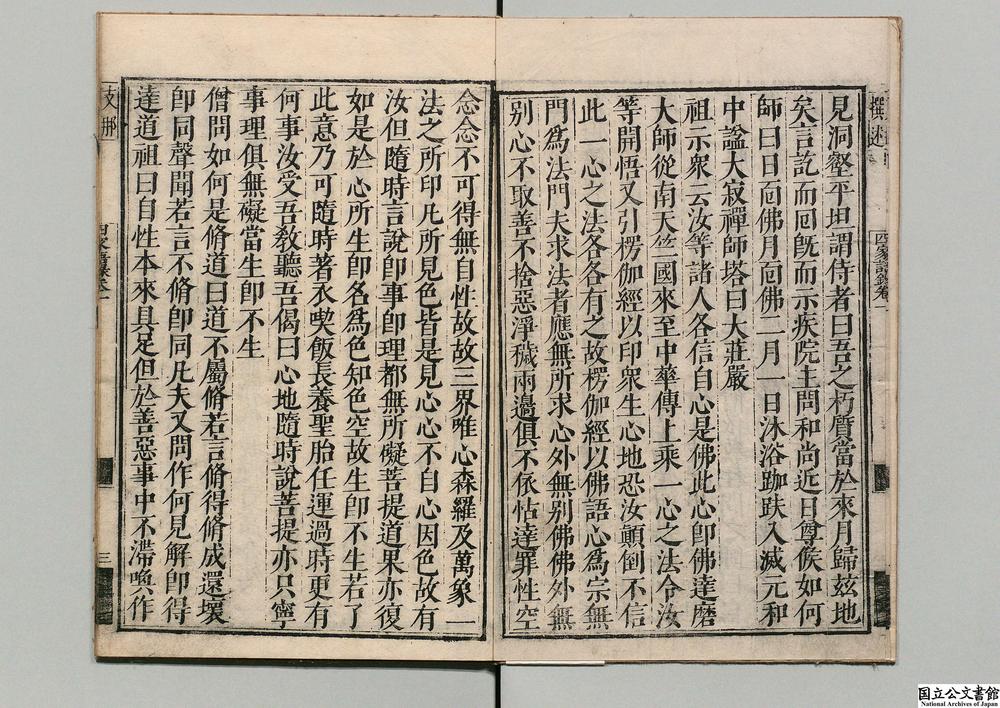 見洞壑平坦謂侍者曰吾之朽質當於來月歸玆地
矣言訖而囘旣而示疾院主問和尚近日尊候如何
師曰日靣佛月靣佛二月一日沐浴跏趺入滅元和
中諡大寂禪師塔曰大莊嚴
祖示衆云汝等諸人各信自心是佛此心卽佛達磨
大師從南天竺國來至中華傳上乘一心之法令汝
等開悟又引楞伽經以印衆生心地恐汝顛倒不信
此一心之法各各有之故楞伽經以佛語心爲宗無
門爲法門夫求法者應無所求心外無別佛佛外無
別心不取善不捨惡淨穢兩邊俱不依怙達罪性空
念念不可得無自性故故三界唯心森羅及萬象一
法之所印凡所見色皆是見心心不自心因色故有
汝但隨時言說卽事卽理都無所礙菩提道果亦復
如是於心所生卽名爲色知色空故生卽不生若了
此意乃可隨時著衣喫飯長養聖胎任運過時更有
何事汝受吾敎聽吾偈曰心地隨時說菩提亦只寧
事理俱無礙當生卽不生
僧問如何是脩道曰道不屬脩若言脩得脩成還壞
卽同聲聞若言不脩卽同凡夫又問作何見解卽得
達道祖曰自性本來具足但於善惡事中不滯喚作
撰述
四家語錄卷一
三
国立公文書館
National Archives of Japan